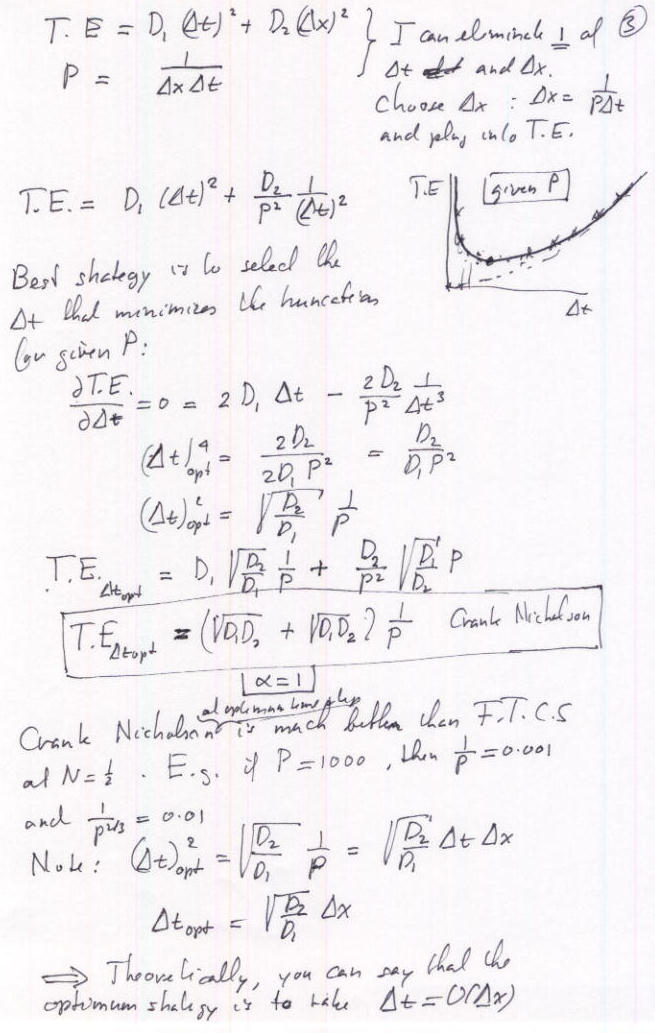 T.E = D₁(Δt)² + D₂(Δx)² } I can eliminate 1 of ③
P = 1/(Δx Δt)
Δt and Δx.
Choose Δx : Δx = 1/(PΔt)
and plug into T.E.
T.E. = D₁(Δt)² + D₂/P² 1/(Δt)²
T.E
given P
Δt
Best strategy is to select the
Δt that minimizes the truncation
for given P:
∂T.E./∂Δt = 0 = 2 D₁ Δt - 2D₂/P² 1/Δt³
(Δt)⁴opt = 2D₂/(2D₁P²) = D₂/(D₁P²)
(Δt)²opt = √(D₂/D₁) 1/P
T.E.Δt opt = D₁ √(D₂/D₁) 1/P + D₂/P² √(D₁/D₂) P
T.E.Δt opt = (√D₁D₂ + √D₁D₂) 1/P Crank Nicholson
α=1
at optimum time step
Crank Nicholson is much better than F.T.C.S
at N=½ . E.g. if P=1000, then 1/P = 0.001
and 1/P^(2/3) = 0.01
Note: (Δt)²opt = √(D₂/D₁) 1/P = √(D₂/D₁) Δt Δx
Δt opt = √(D₂/D₁) Δx
⇒ Theoretically, you can say that the
optimum strategy is to take Δt = O(Δx)